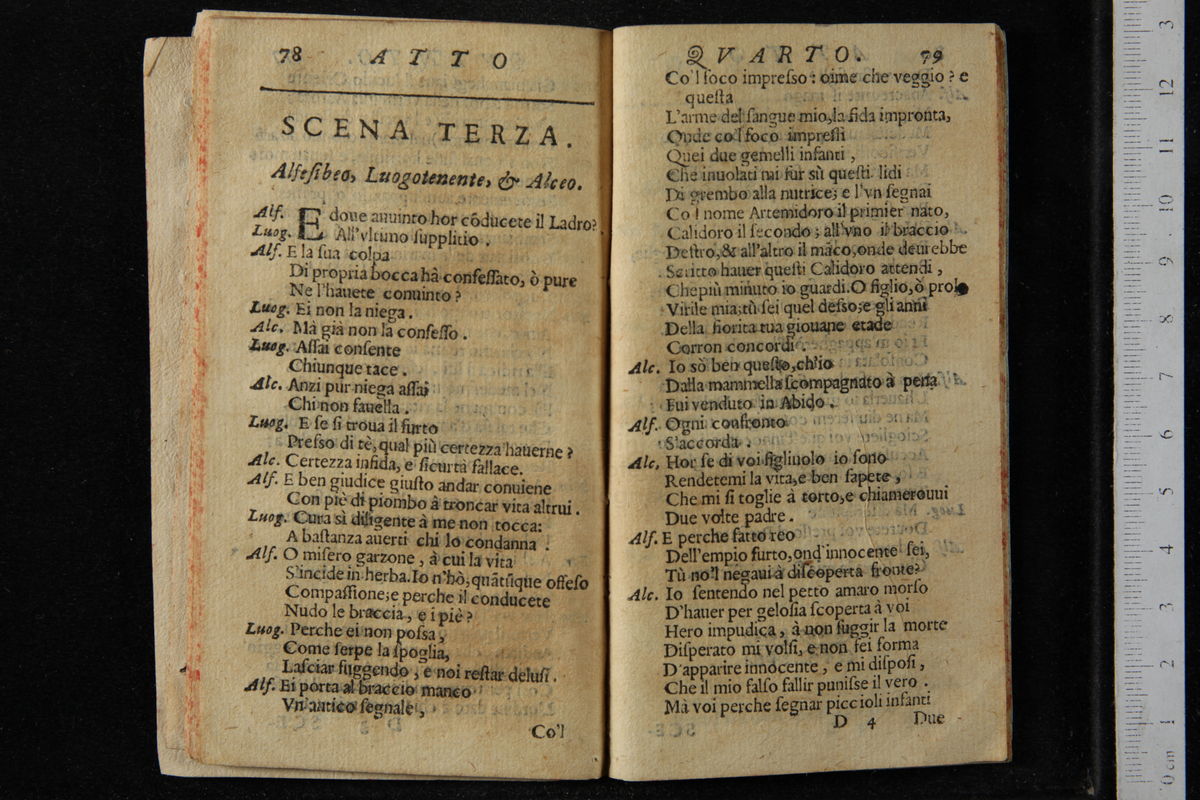 78 ATTO
SCENA TERZA.
Alfesibeo, Luogotenente, & Alceo.
Alf. E doue auuinto hor cõducete il Ladro?
Luog. All'vltimo supplitio.
Alf. E la sua colpa
Di propria bocca hà confessato, ò pure
Ne l'hauete conuinto?
Luog. Ei non la niega.
Alc. Mà già non la confesso.
Luog. Assai consente
Chiunque tace.
Alc. Anzi pur niega assai
Chi non fauella.
Luog. E se si troua il furto
Presso di tè, qual più certezza hauerne?
Alc. Certezza infida, e sicurtà fallace.
Alf. E ben giudice giusto andar conuiene
Con piè di piombo à troncar vita altrui.
Luog. Cura sì diligente à me non tocca:
A bastanza auertì chi lo condanna.
Alf. O misero garzone, à cui la vita
S'incide in herba. Io n'hò, quãtũque offeso
Compassione; e perche il conducete
Nudo le braccia, e i piè?
Luog. Perche ei non possa,
Come serpe la spoglia,
Lasciar fuggendo, e noi restar delusi.
Alf. Ei porta al braccio manco
Vn'antico segnale,
Co'l
QVARTO. 79
Co'l foco impresso: oime che veggio? e
questa
L'arme del sangue mio, la fida impronta,
Onde co'l foco impressi
Quei due gemelli infanti,
Che inuolati mi fur sù questi lidi
Di grembo alla nutrice; e l'vn segnai
Co l nome Artemidoro il primier nato,
Calidoro il secondo; all'vno il braccio
Destro, & all'altro il mãco, onde deurebbe
Scritto hauer questi Calidoro attendi,
Che più minuto io guardi. O figlio, ò prole
Virile mia; tù sei quel desso; e gli anni
Della fiorita tua giouane etade
Corron concordi.
Alc. Io sò ben questo, ch'io
Dalla mammella scompagnato à pena
Fui venduto in Abido.
Alf. Ogni confronto
S'accorda.
Alc, Hor se di voi figliuolo io sono
Rendetemi la vita, e ben sapete,
Che mi si toglie à torto, e chiamerouui
Due volte padre.
Alf. E perche fatto reo
Dell'empio furto, ond'innocente sei,
Tù no'l negaui à discoperta fronte?
Alc. Io sentendo nel petto amaro morso
D'hauer per gelosia scoperta à voi
Hero impudica, à non fuggir la morte
Disperato mi volsi, e non fei forma
D'apparire innocente, e mi disposi,
Che il mio falso fallir punisse il vero.
Mà voi perche segnar piccioli infanti
D 4 Due